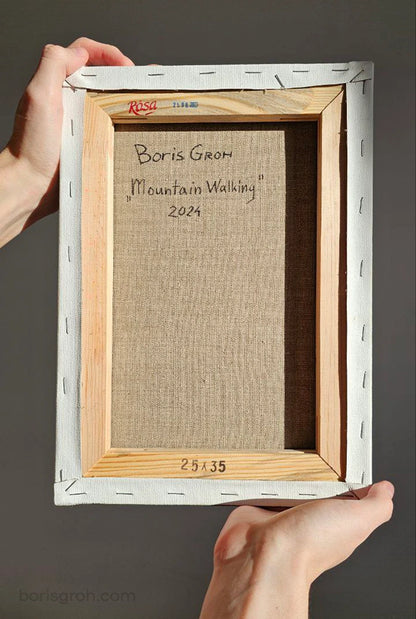 Rosa
Boris Groh
"Mountain Walking"
2024
25x35
borisgroh.com